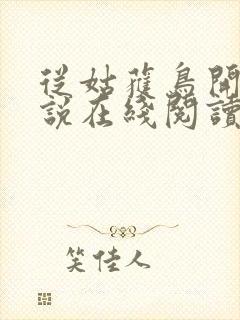 從姑蘿鳥開
說在綫閱讀
笑佳人